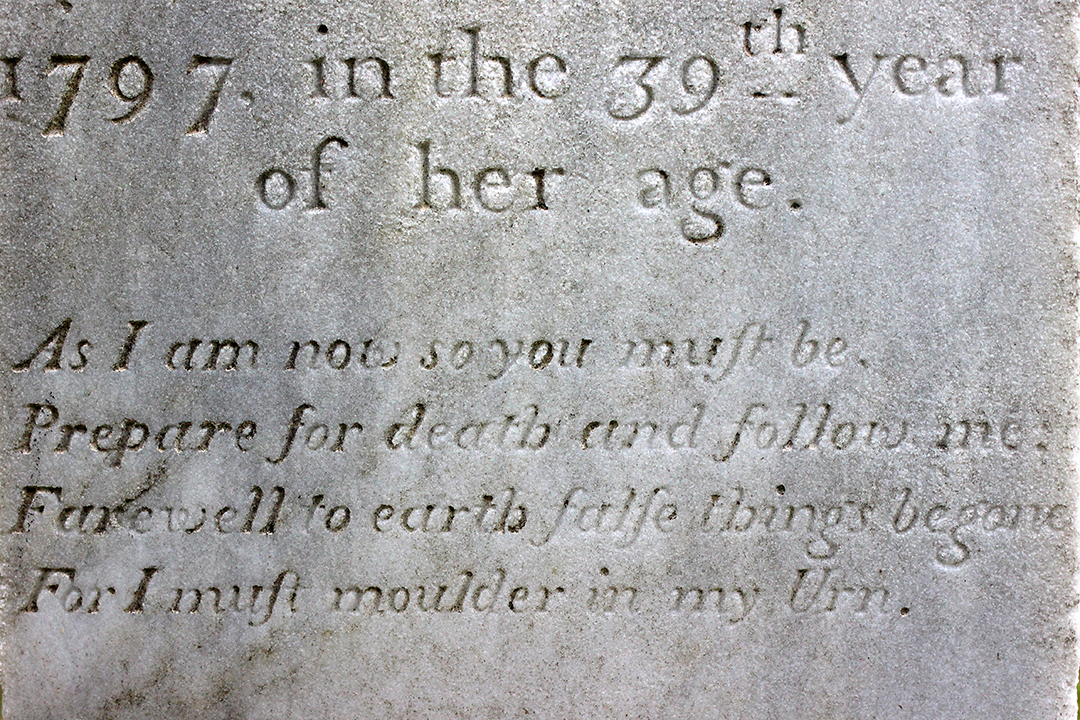 1797, in the 39th year
of her age.
As I am now so you muſt be.
Prepare for death and follow me:
Farewell to earth falſe things begone
For I muſt moulder in my Urn.